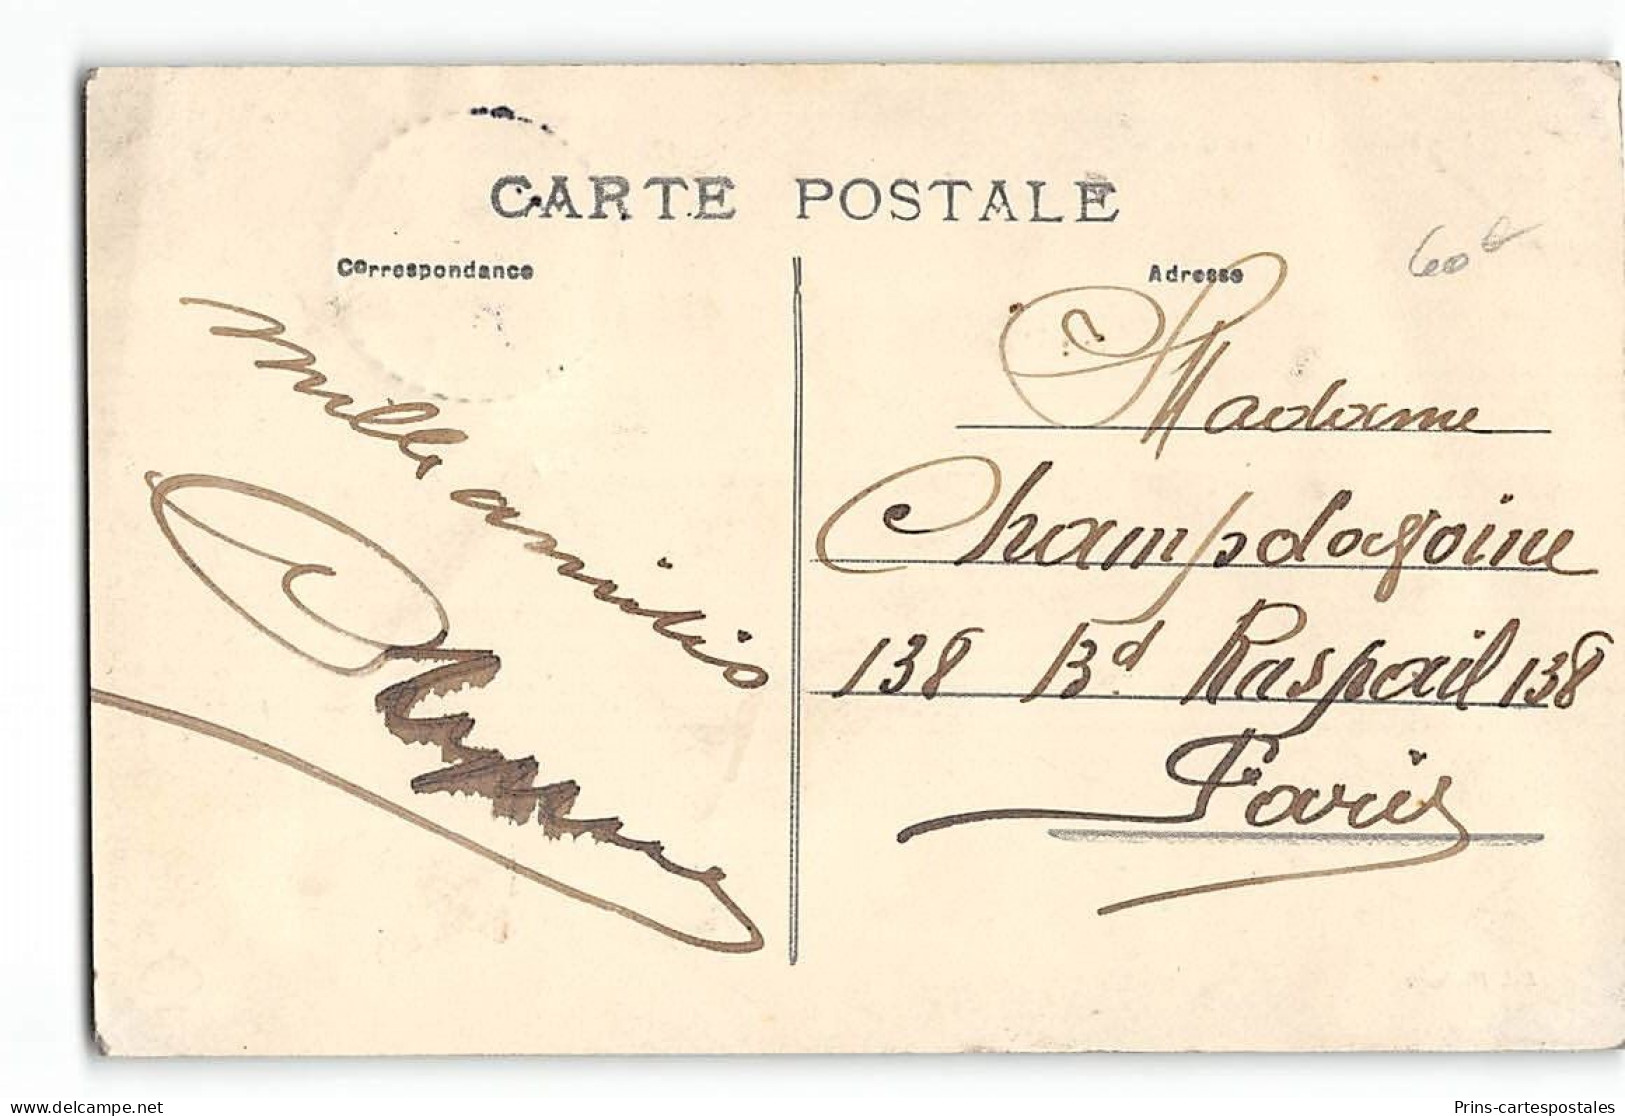 CARTE POSTALE
Correspondance
Adresse
60
mille amitiés
Madame
Champdavoine
138 Bd Raspail 138
Paris
delcampe.net
Prins-cartespostales